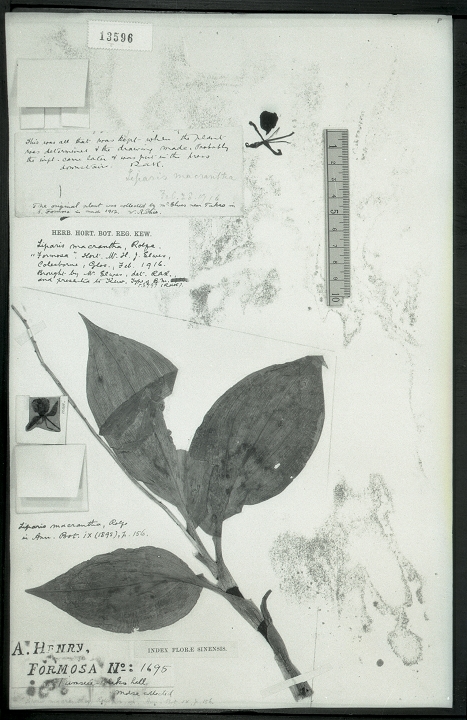 13596
This was all that was kept when the plant
was determined & the drawing made. Probably
the infl. came later & was put in the press
Liparis macrantha
The original plant was collected by Mr Elwes near Takao in
S. Formosa in 1912.
HERB. HORT. BOT. REG. KEW.
Liparis macrantha Rolfe.
"Formosa". Hort. Mr. H. J. Elwes,
Colesborne, Glos., Feb. 1916.
Brought by Mr. Elwes, det. RAR,
and presented to Kew,
1 2 3 4 5 6 7 8 9 10
Liparis macrantha, Rolfe
in Ann. Bot. IX (1895), p. 156.
A. HENRY,
INDEX FLORÆ SINENSIS.
FORMOSA No: 1695